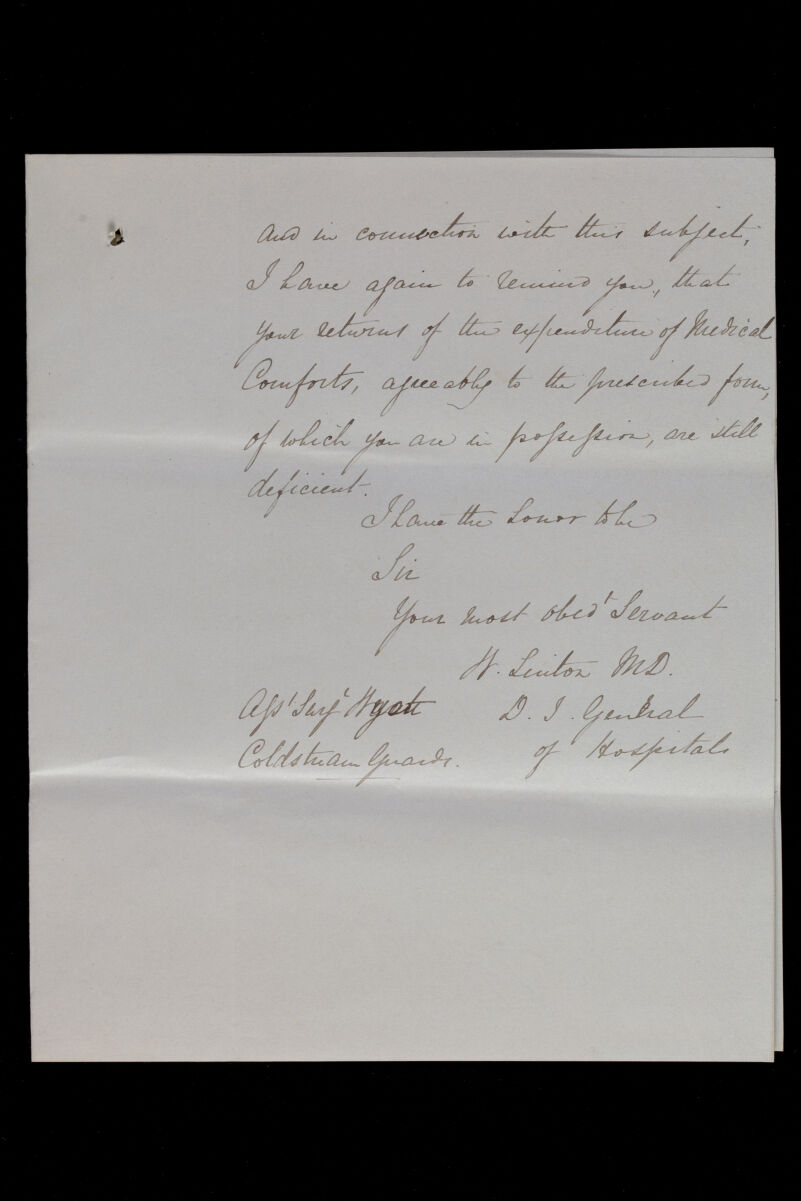 and in connection with this subject,
I have again to remind you, that
your returns of the expenditure of Medical
Comforts, agreeably to the prescribed form,
of which you are in possession, are still
deficient.
I have the honor to be
Sir
Your most obedt Servant
W. Linton MD.
Asst Surgn Wyatt
D. I. General
Coldstream Guards.
of Hospitals